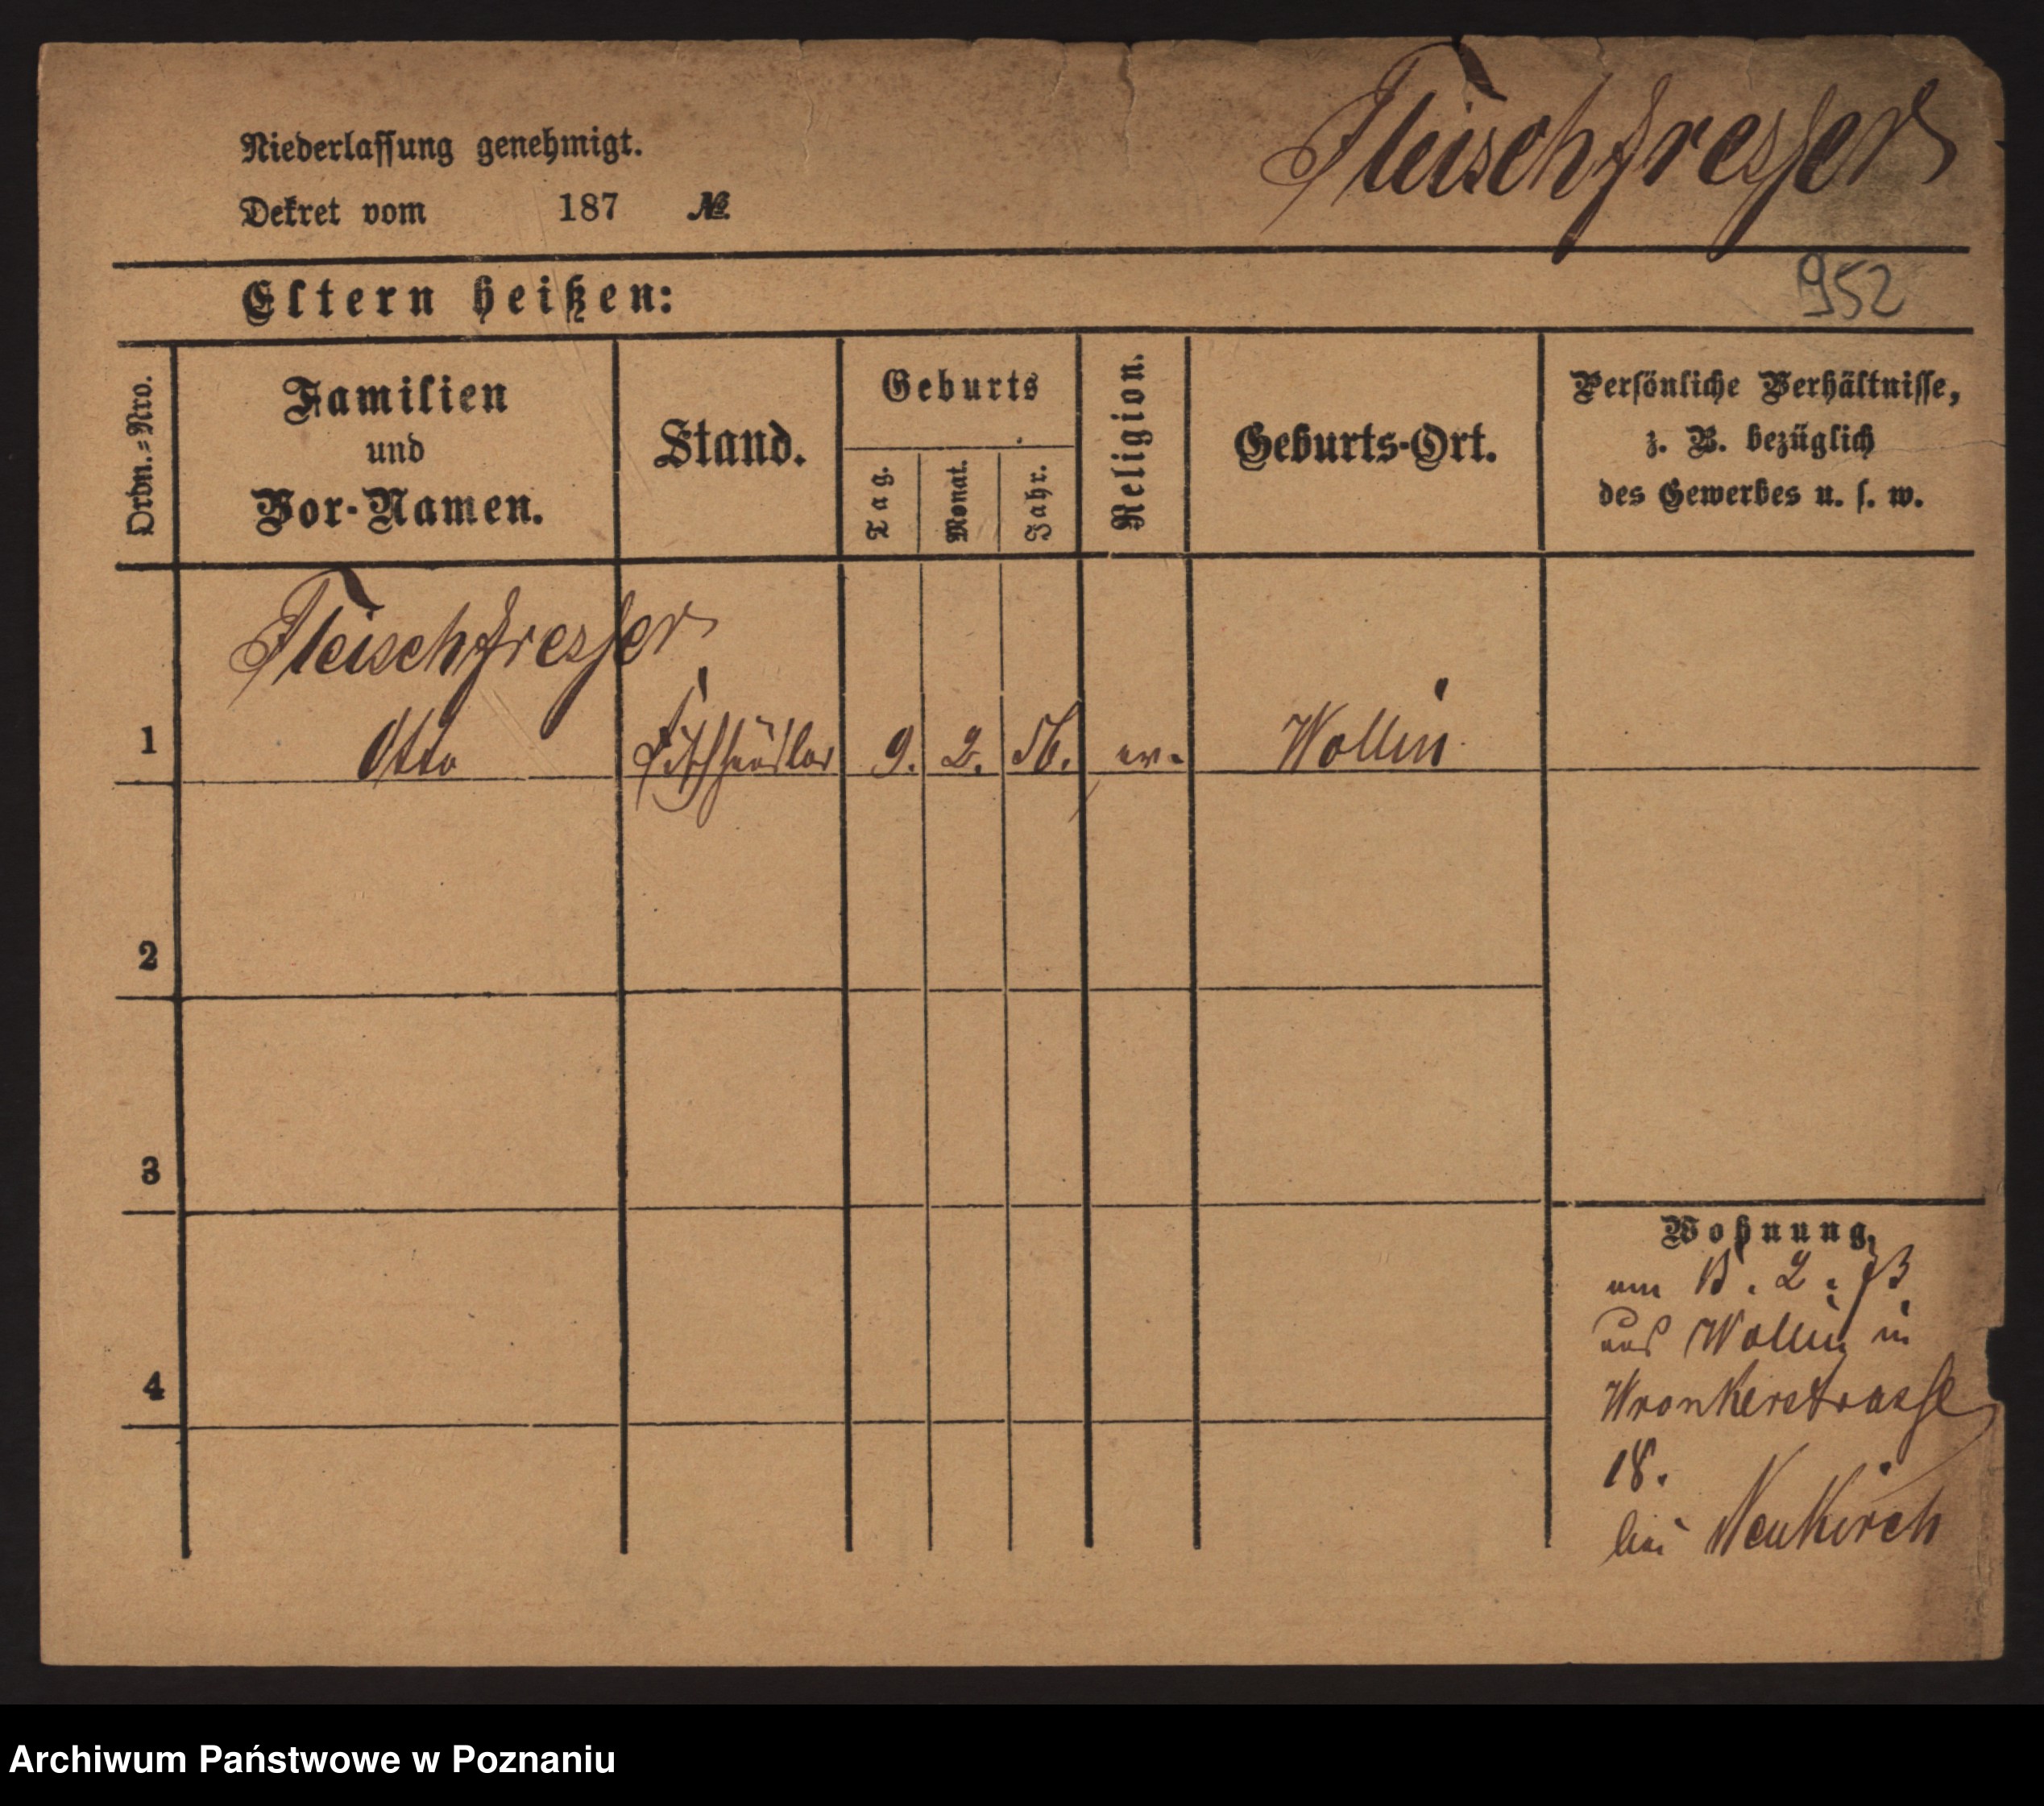 Fleischfresser
Niederlassung genehmigt.
Dekret vom 187 №
952
Eltern heißen:
Ordn.=Nro.
Familien
und
Vor-Namen.
Stand.
Geburts
Tag.
Monat.
Jahr.
Religion.
Geburts-Ort.
Persönliche Verhältnisse,
z. B. bezüglich
des Gewerbes u. s. w.
Fleischfresser
1 Otto Fischhändler 9. 2. 56. ev. Wollin
2
3
4
Wohnung.
am . 2. 73
aus Wollin in
Wronkerstrasse
18.
bei Neukirch
Archiwum Państwowe w Poznaniu